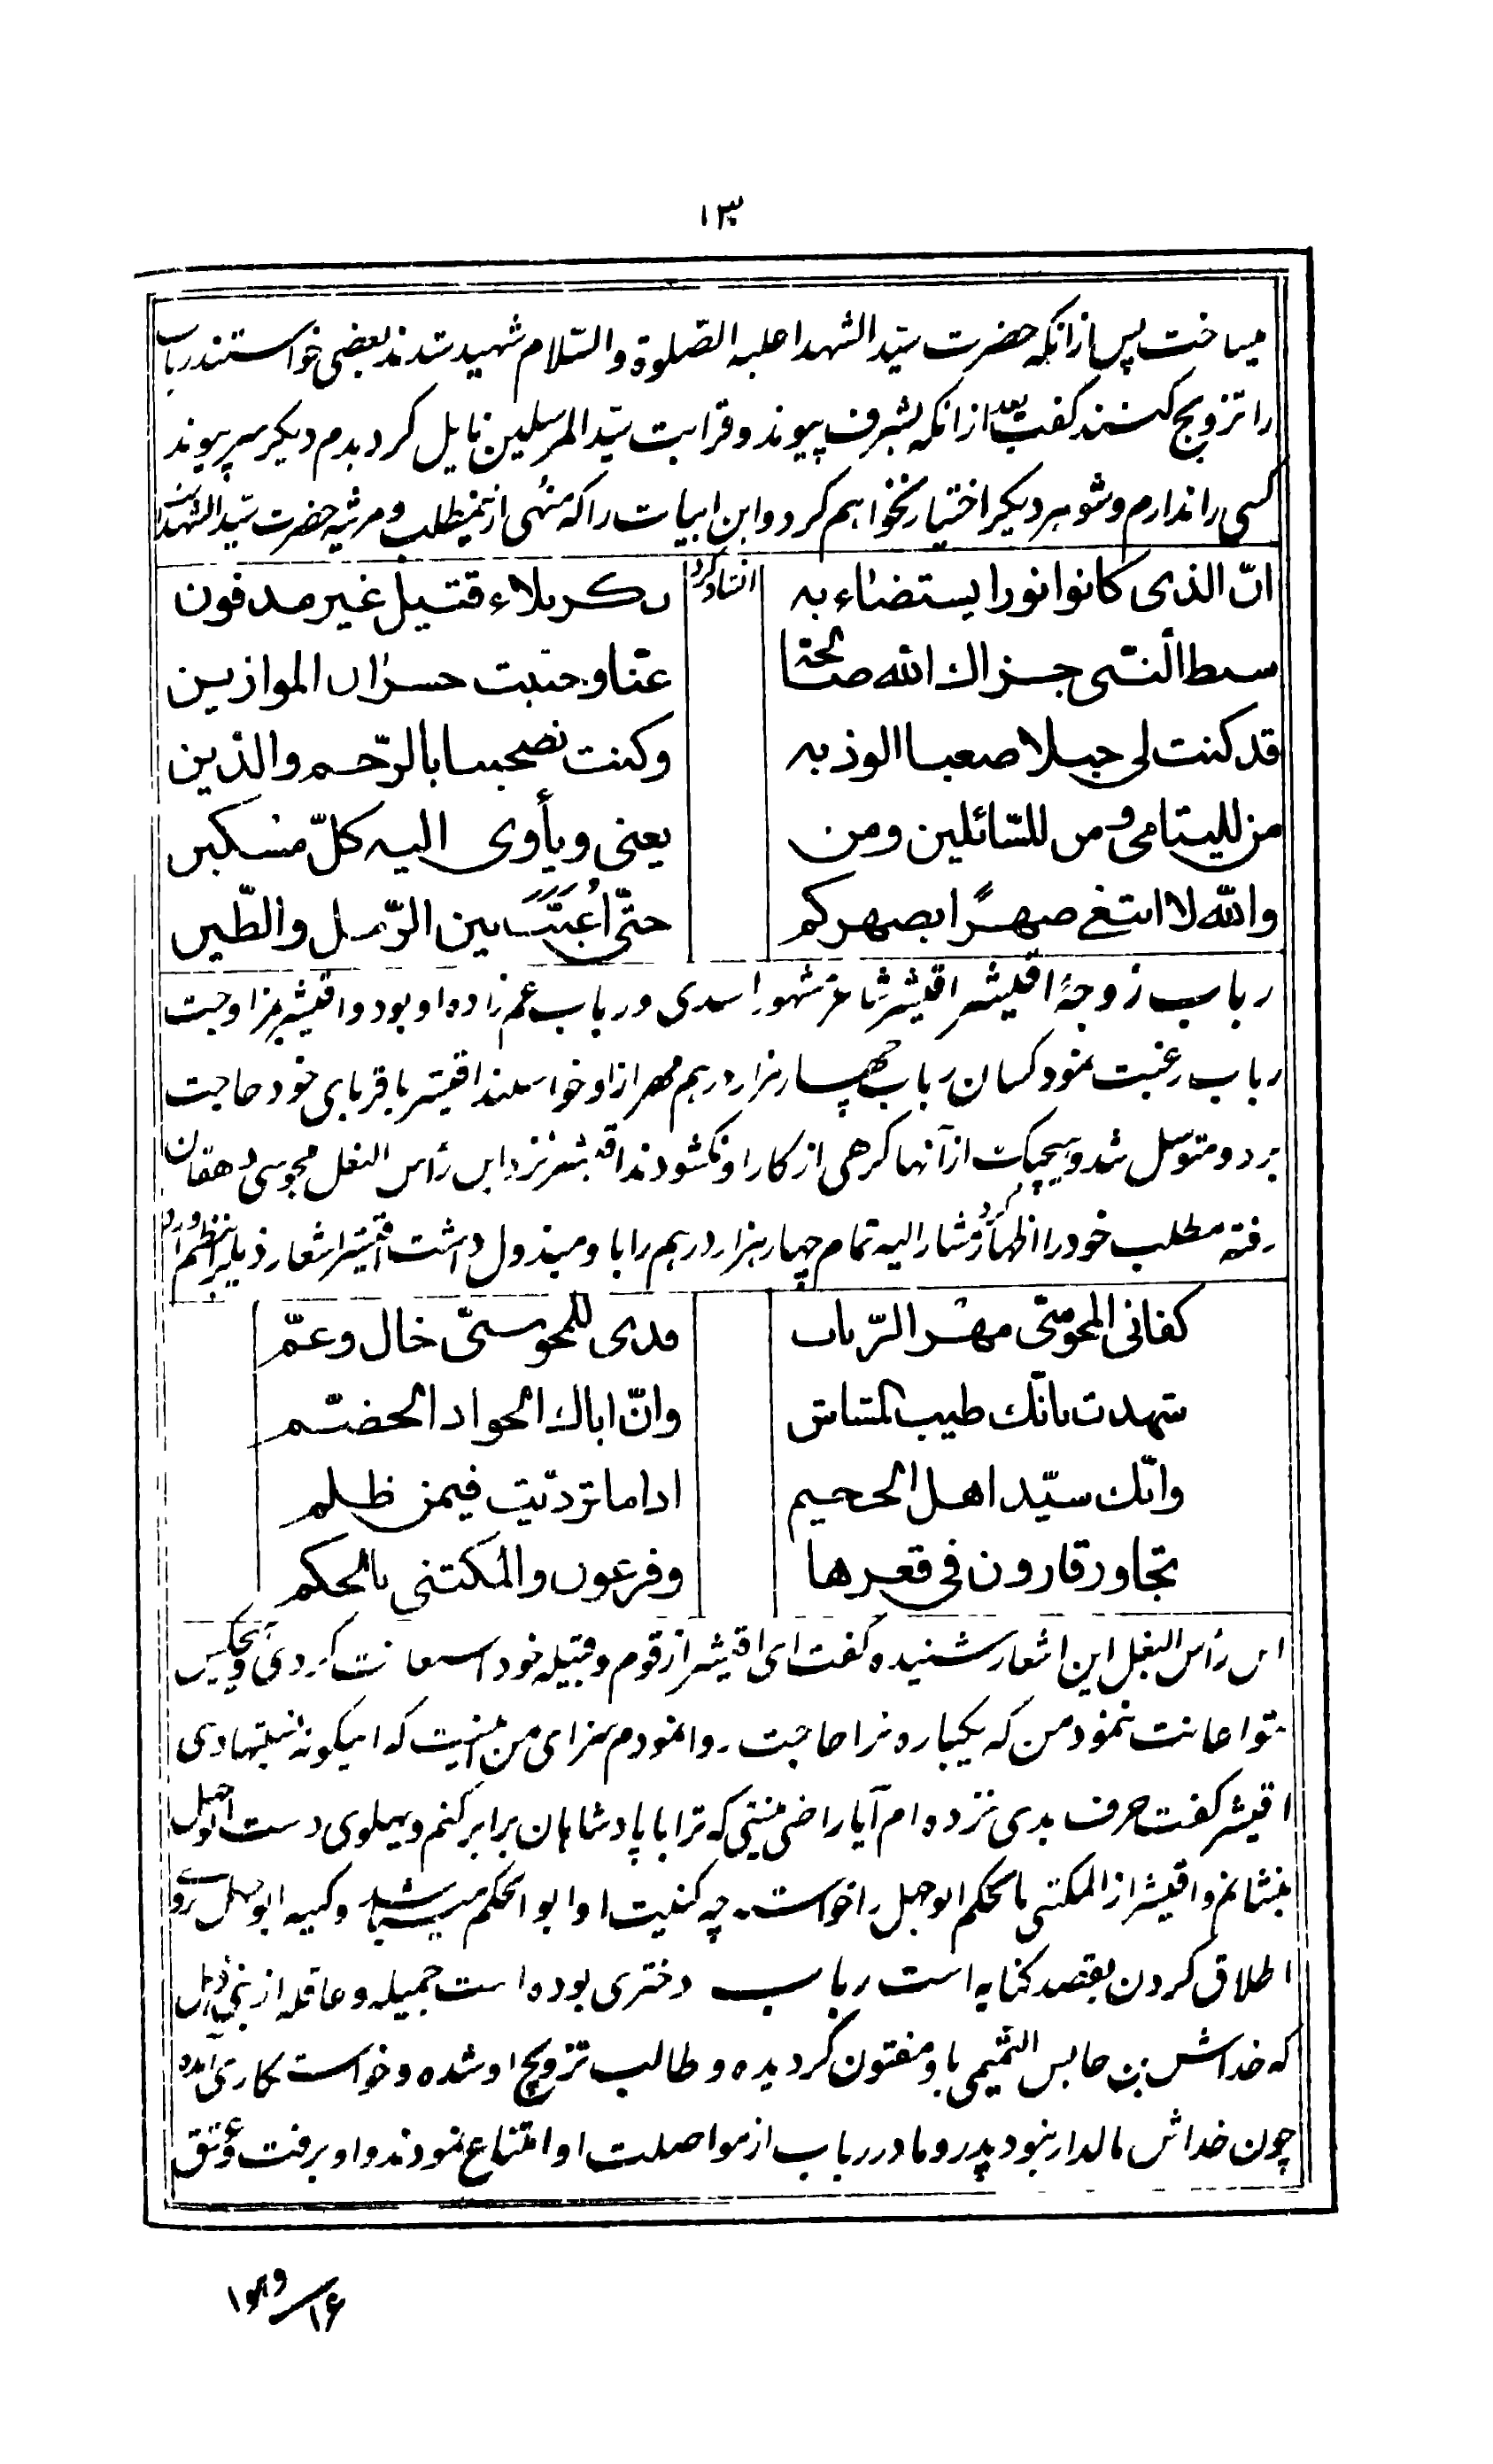 ۱۳
میساخت پس از انکه حضرت سیّد الشهدا علیه الصّلوة والسّلام شهید شدند بعضی خواستند رباب
را تزویج کنند گفت بعد از انکه بشرف پیوند و قرابت سیّد المرسلین نایل کردیدم دیکر سر پیوند
کسی را ندارم و شوهر دیکر اختیار نخواهم کرد و این ابیات را که منبی از ینمطلب و مرثیه حضرت سیّد الشهدا است
انشاد کرد
انّ الذی کانوا نورا یستضاء به بکربلاء قتیل غیر مدفون
سبط النّبی جزاك الله صالحة عنّا و جنبت خسران الموازین
قد کنت لی جبلا صعبا الوذ به وکنت تصحبنا بالرّحم والدّین
من للیتامی و من للسّائلین ومن یعنی ویأوی الیه کلّ مسکین
والله لا ابتغی صهرًا بصهرکم حتّی اُغَیَّبَ بین الرّمل والطّین
رباب زوجهٔ اقیشر اقیشر شاعر مشهور اسدی و رباب عم زاده او بود و اقیشر بمزاوجت
رباب رغبت نمود کسان رباب چهار هزار درهم مهر از او خواستند اقیشر باقربای خود حاجت
برد و متوسل شد و هیچیک از آنها کرهی از کار او نکشودند اقیشر نزد ابن رأس البغل مجوسی دهقان
رفته مطلب خود را اظهار کرد مشار الیه تمام چهار هزار درهم را باو مبذول داشت اقیشر اشعار ذیل را بنظم آورد
کفانی المجوسّی مهر الرّباب فدی للمجوسّی خال وعمّ
شهدت بانّك طیب المشاش وانّ اباك الجواد الخضّم
وانّك سیّد اهل الجحیم اذا ما تردّیت فیمن ظلم
تجاور قارون فی قعرها وفرعون والمکتنی بالحکم
ابن رأس البغل این اشعار شنیده گفت ای اقیشر از قوم و قبیله خود استعانت کردی و هیچکس
بتو اعانت ننمود من که یکباره ترا حاجت روا نمودم سزای من اینست که اینکونه نسبتها دهی
اقیشر کفت حرف بدی نزده ام آیا راضی نیستی که ترا با پادشاهان برابر کنم و پهلوی دست ابو جهل
بنشانم و اقیشر از المکتنی بالحکم ابو جهل را خواسته چه کنیت او ابو الحکم میباشد و کنیه ابو جهل بروی
اطلاق کردن بقصد کنایه است رباب دختری بوده است جمیله و عاقله از بنی ذهل
که خداش بن حابس التمیمی باو مفتون کردیده و طالب تزویج او شده و خواستکاری آمده
چون خداش مالدار نبود پدر و مادر رباب از مواصلت او امتناع نمودند و او برفت و عشق